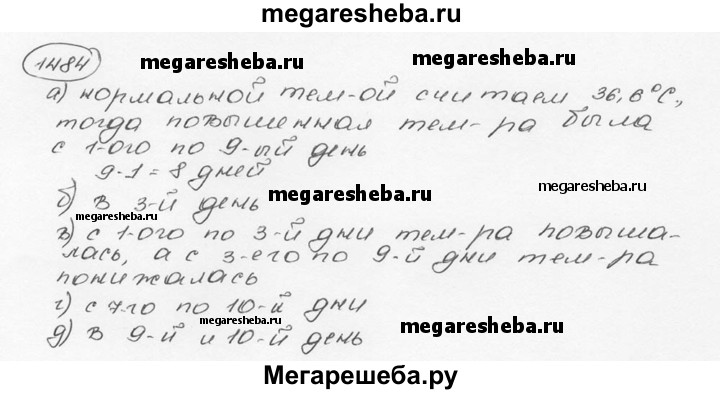 megaresheba.ru
1484 megaresheba.ru megaresheba.ru
а) нормальной тем-ой считаем 36,6°С,
тогда повышенная тем-ра была
с 1-ого по 9-ый день
9-1=8 дней
megaresheba.ru megaresheba.ru
б) в 3-й день
megaresheba.ru
в) с 1-ого по 3-й дни тем-ра повыша-
лась, а с 3-его по 9-й дни тем-ра
понижалась
г) с 7-го по 10-й дни
megaresheba.ru megaresheba.ru
д) в 9-й и 10-й день
Мегарешеба.ру